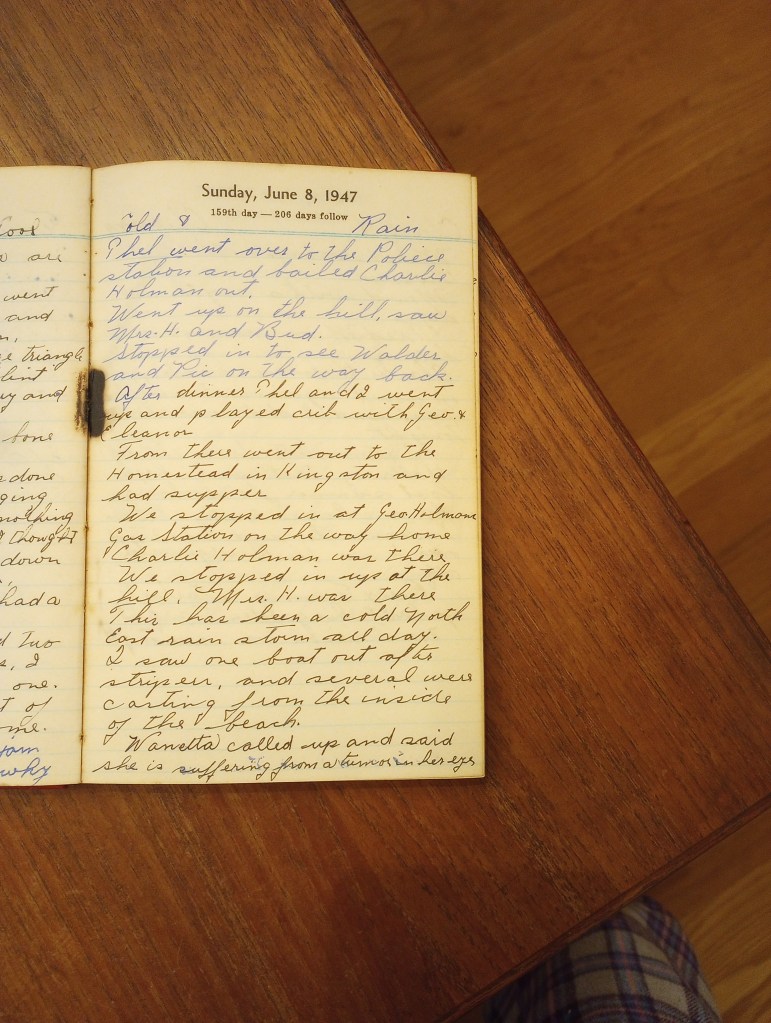 Cool
are
went
and
triangle
lint
and
bone
done
ging
nothing
I thought
down
had a
d two
s, I
one.
t of
me.
why
Sunday, June 8, 1947
159th day — 206 days follow
Cold & Rain
Phel went over to the Police
station and bailed Charlie
Holman out.
Went up on the hill, saw
Mrs. H. and Bud.
Stopped in to see Walder
and Pic on the way back.
After dinner Phel and I went
up and played crib with Geo. &
Eleanor
From there went out to the
Homestead in Kingston and
had supper
We stopped in at Geo. Holmans
Gas Station on the way home
Charlie Holman was there
We stopped in up at the
hill. Mrs. H. was there
This has been a cold North
East rain storm all day.
I saw one boat out after
stripers, and several were
casting from the inside
of the beach.
Wanetta called up and said
she is suffering from a tumor in her eyes